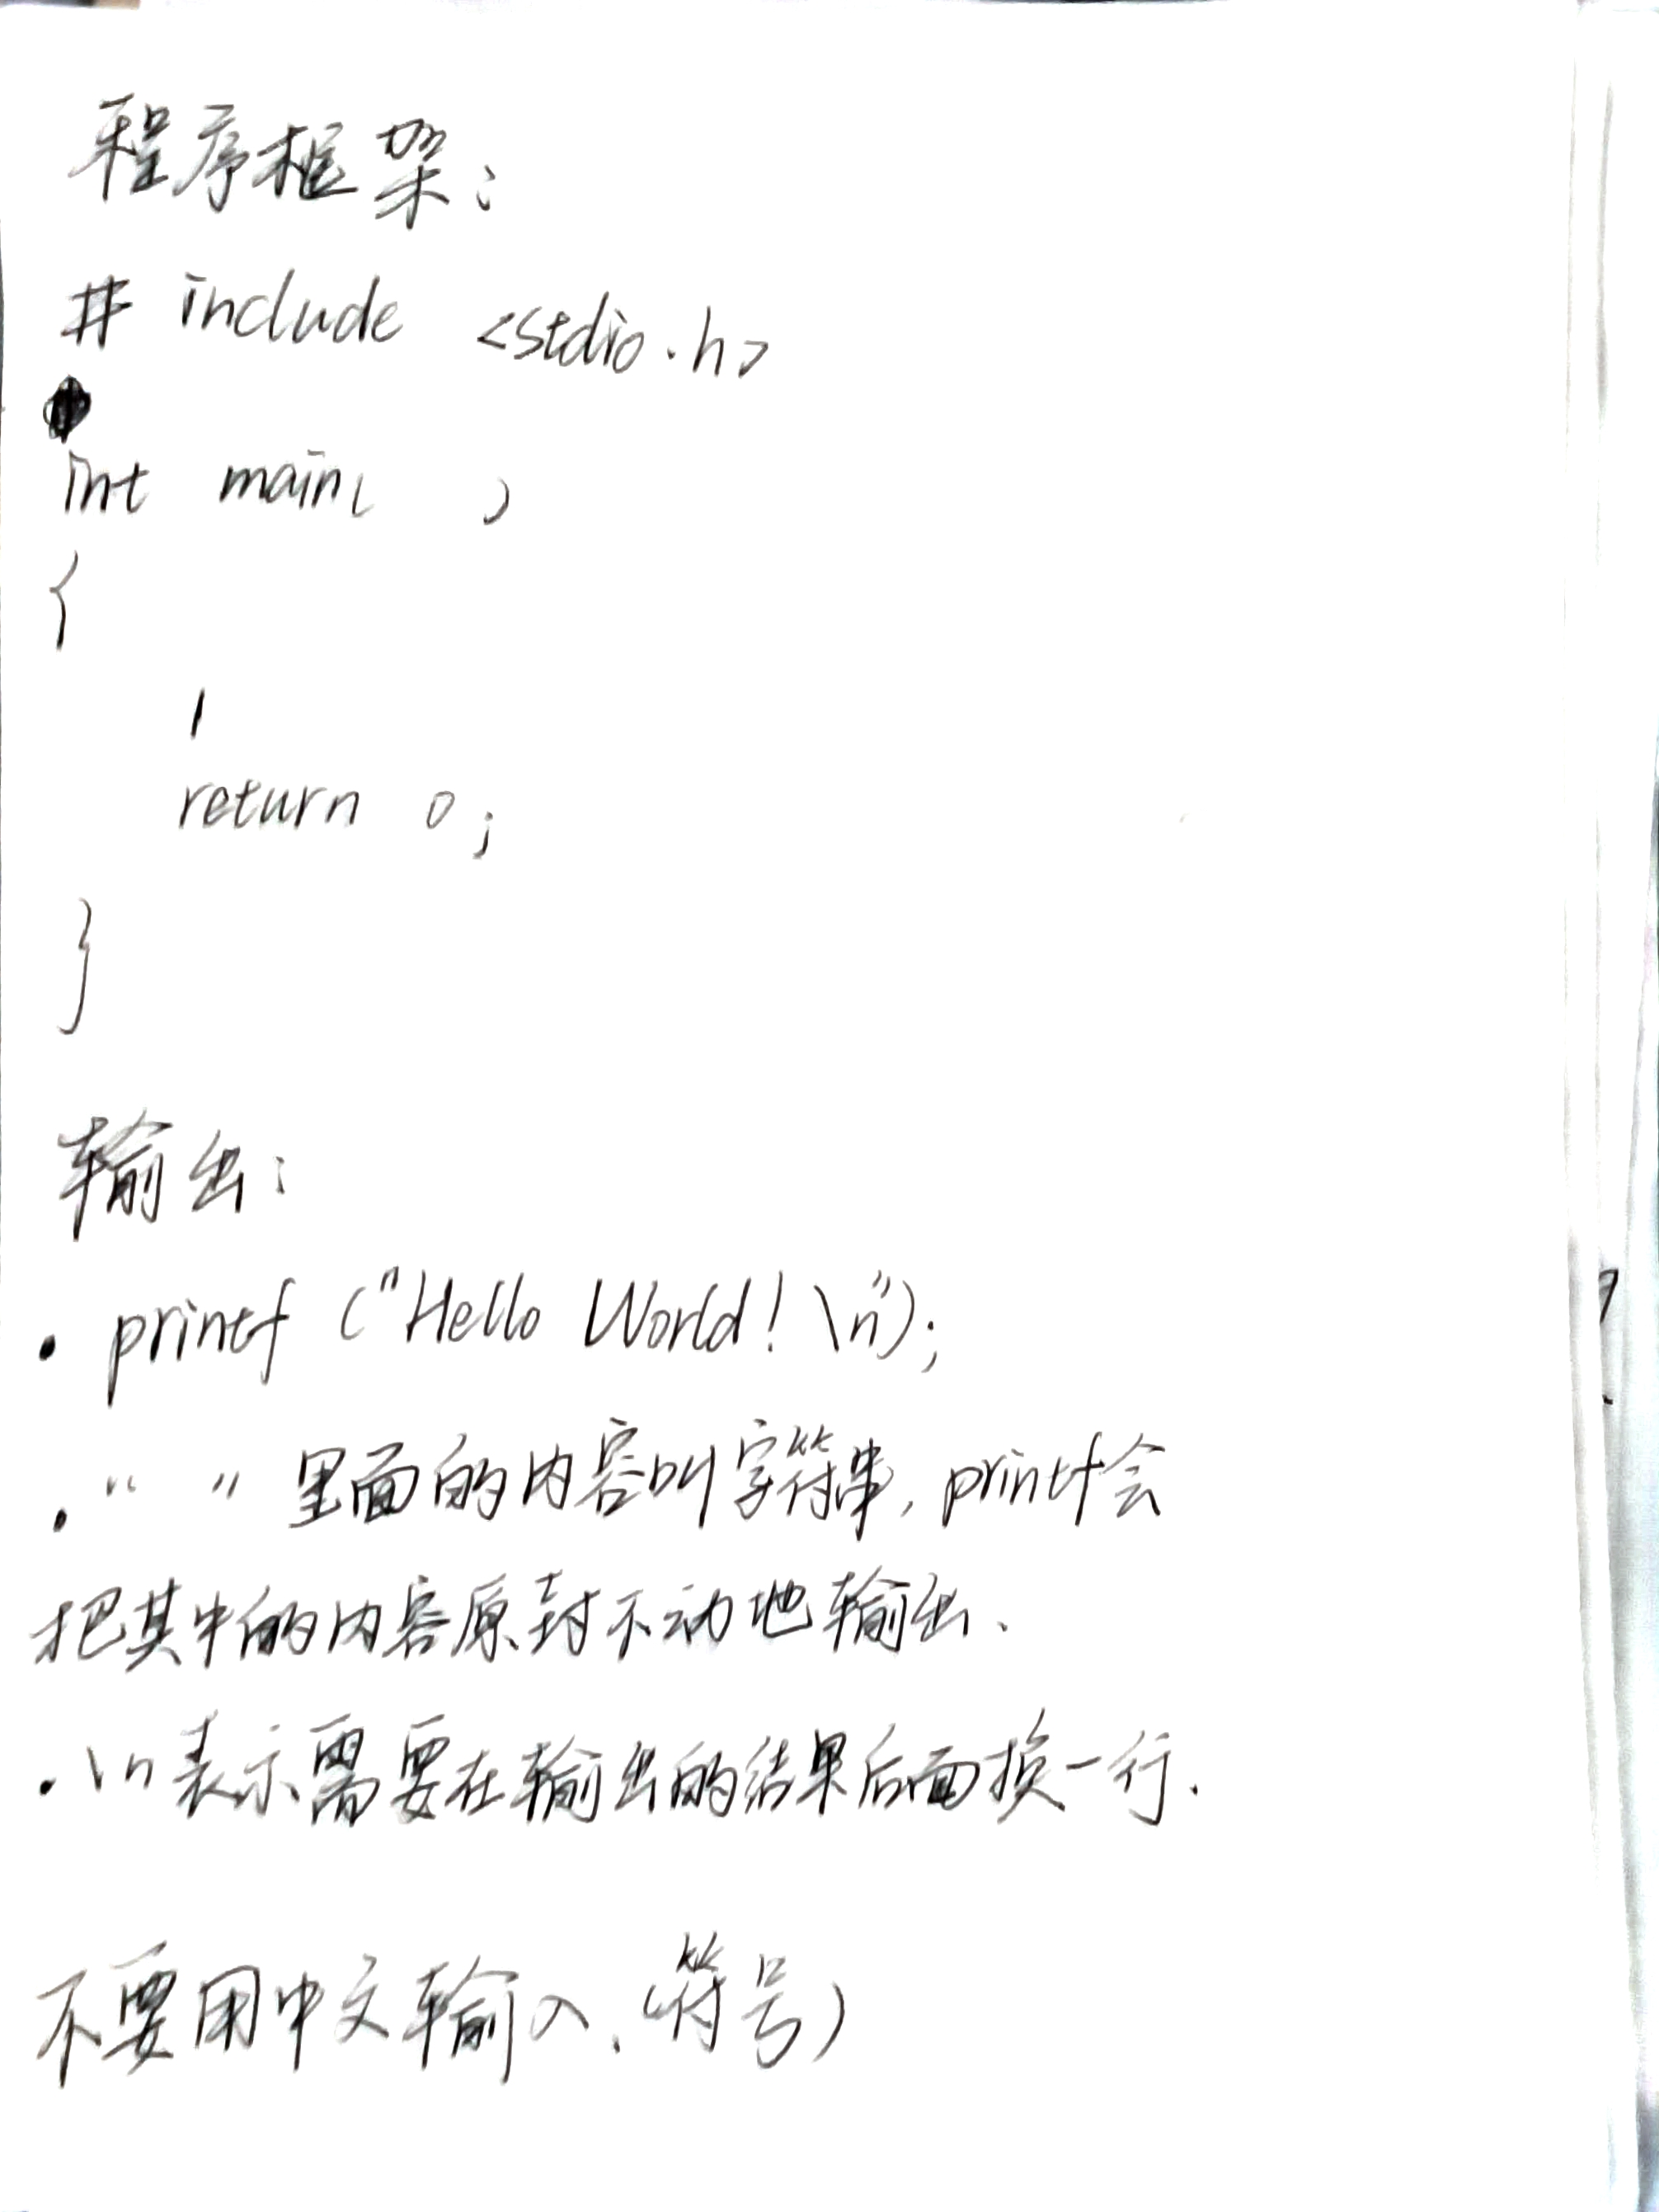 程序框架:
# include <stdio.h>
int main( )
{
return 0;
}
输出:
· printf ("Hello World! \n");
· “ ” 里面的内容叫字符串, printf会
把其中的内容原封不动地输出.
· \n表示需要在输出的结果后面换一行.
不要用中文输入.(符号)